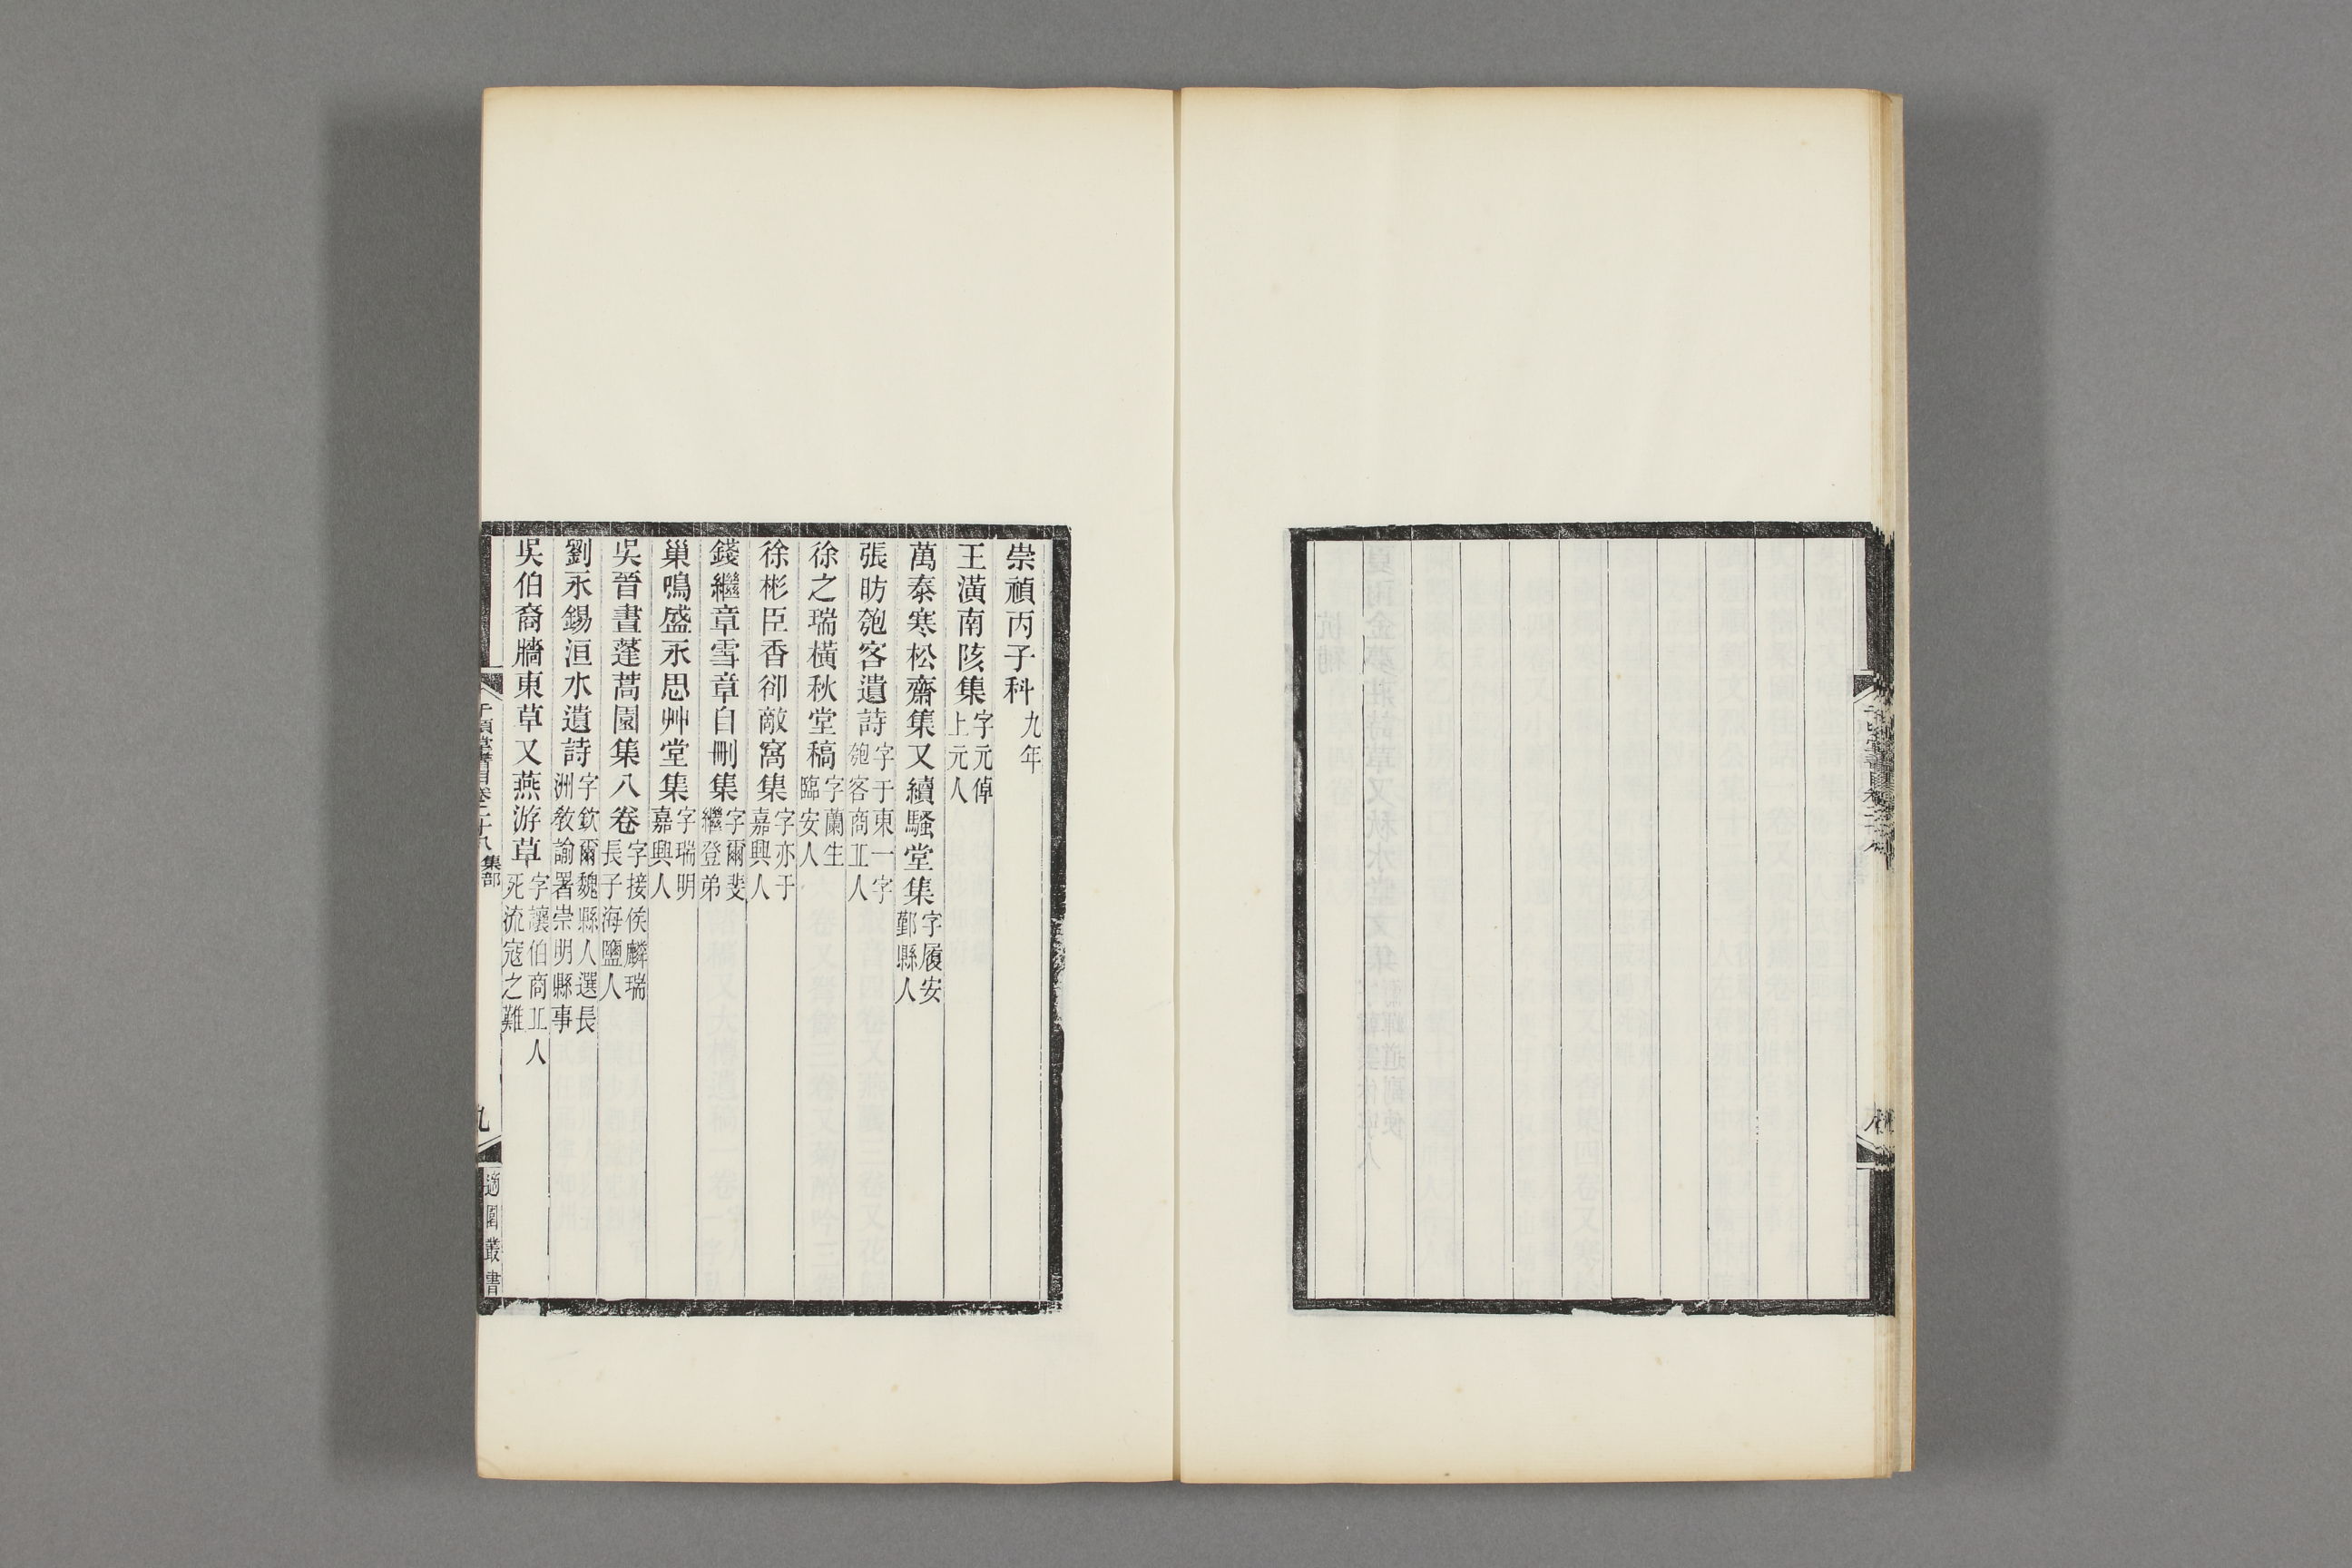 崇禎丙子科九年
王潢南陔集字元倬上元人
萬泰寒松齋集又續騷堂集字履安鄞縣人
張昉匏客遺詩字于東一字匏客商丠人
徐之瑞橫秋堂稿字蘭生臨安人
徐彬臣香卻敵窩集字亦于嘉興人
錢繼章雪章自刪集字爾斐繼登弟
巢鳴盛永思艸堂集字瑞明嘉興人
吳晉晝蓬蒿園集八卷字接侯麟瑞長子海鹽人
劉永錫洹水遺詩字欽爾魏縣人選長洲敎諭署崇明縣事
吳伯裔牆東草又燕游草字讓伯商丠人死流寇之難
千頃堂書目卷二十八集部
九
適園叢書